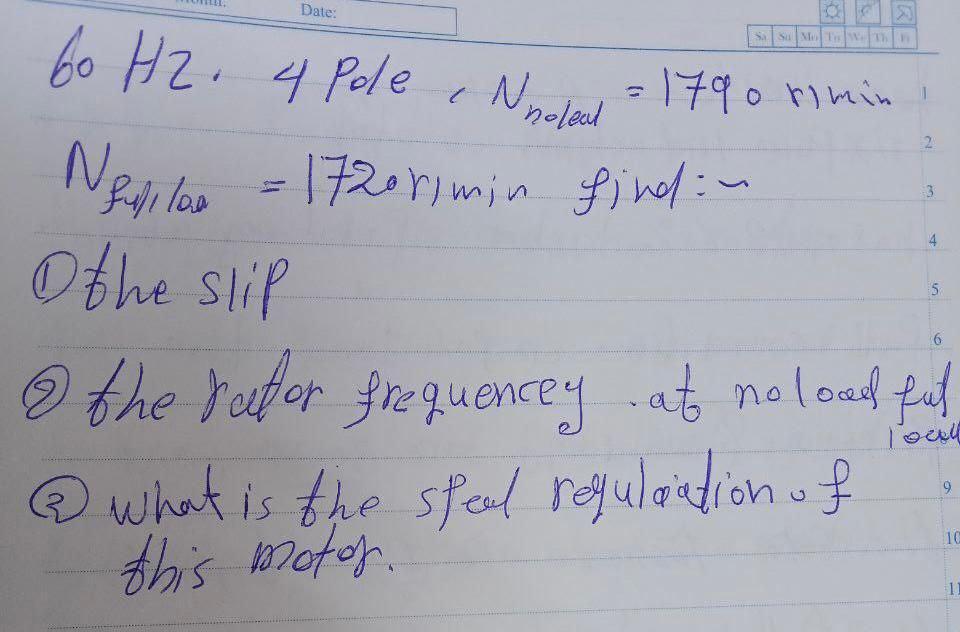 Date:
Sa Su Mo Tu We Th Fr
60 HZ. 4 Pole, N noload = 1790 r/min 1
2
N full loa = 1720 r/min find:~ 3
4
① the slip 5
6
② the rator frequencey . at no load ful
load
③ what is the speed regulaiation of 9
this motor. 10
11